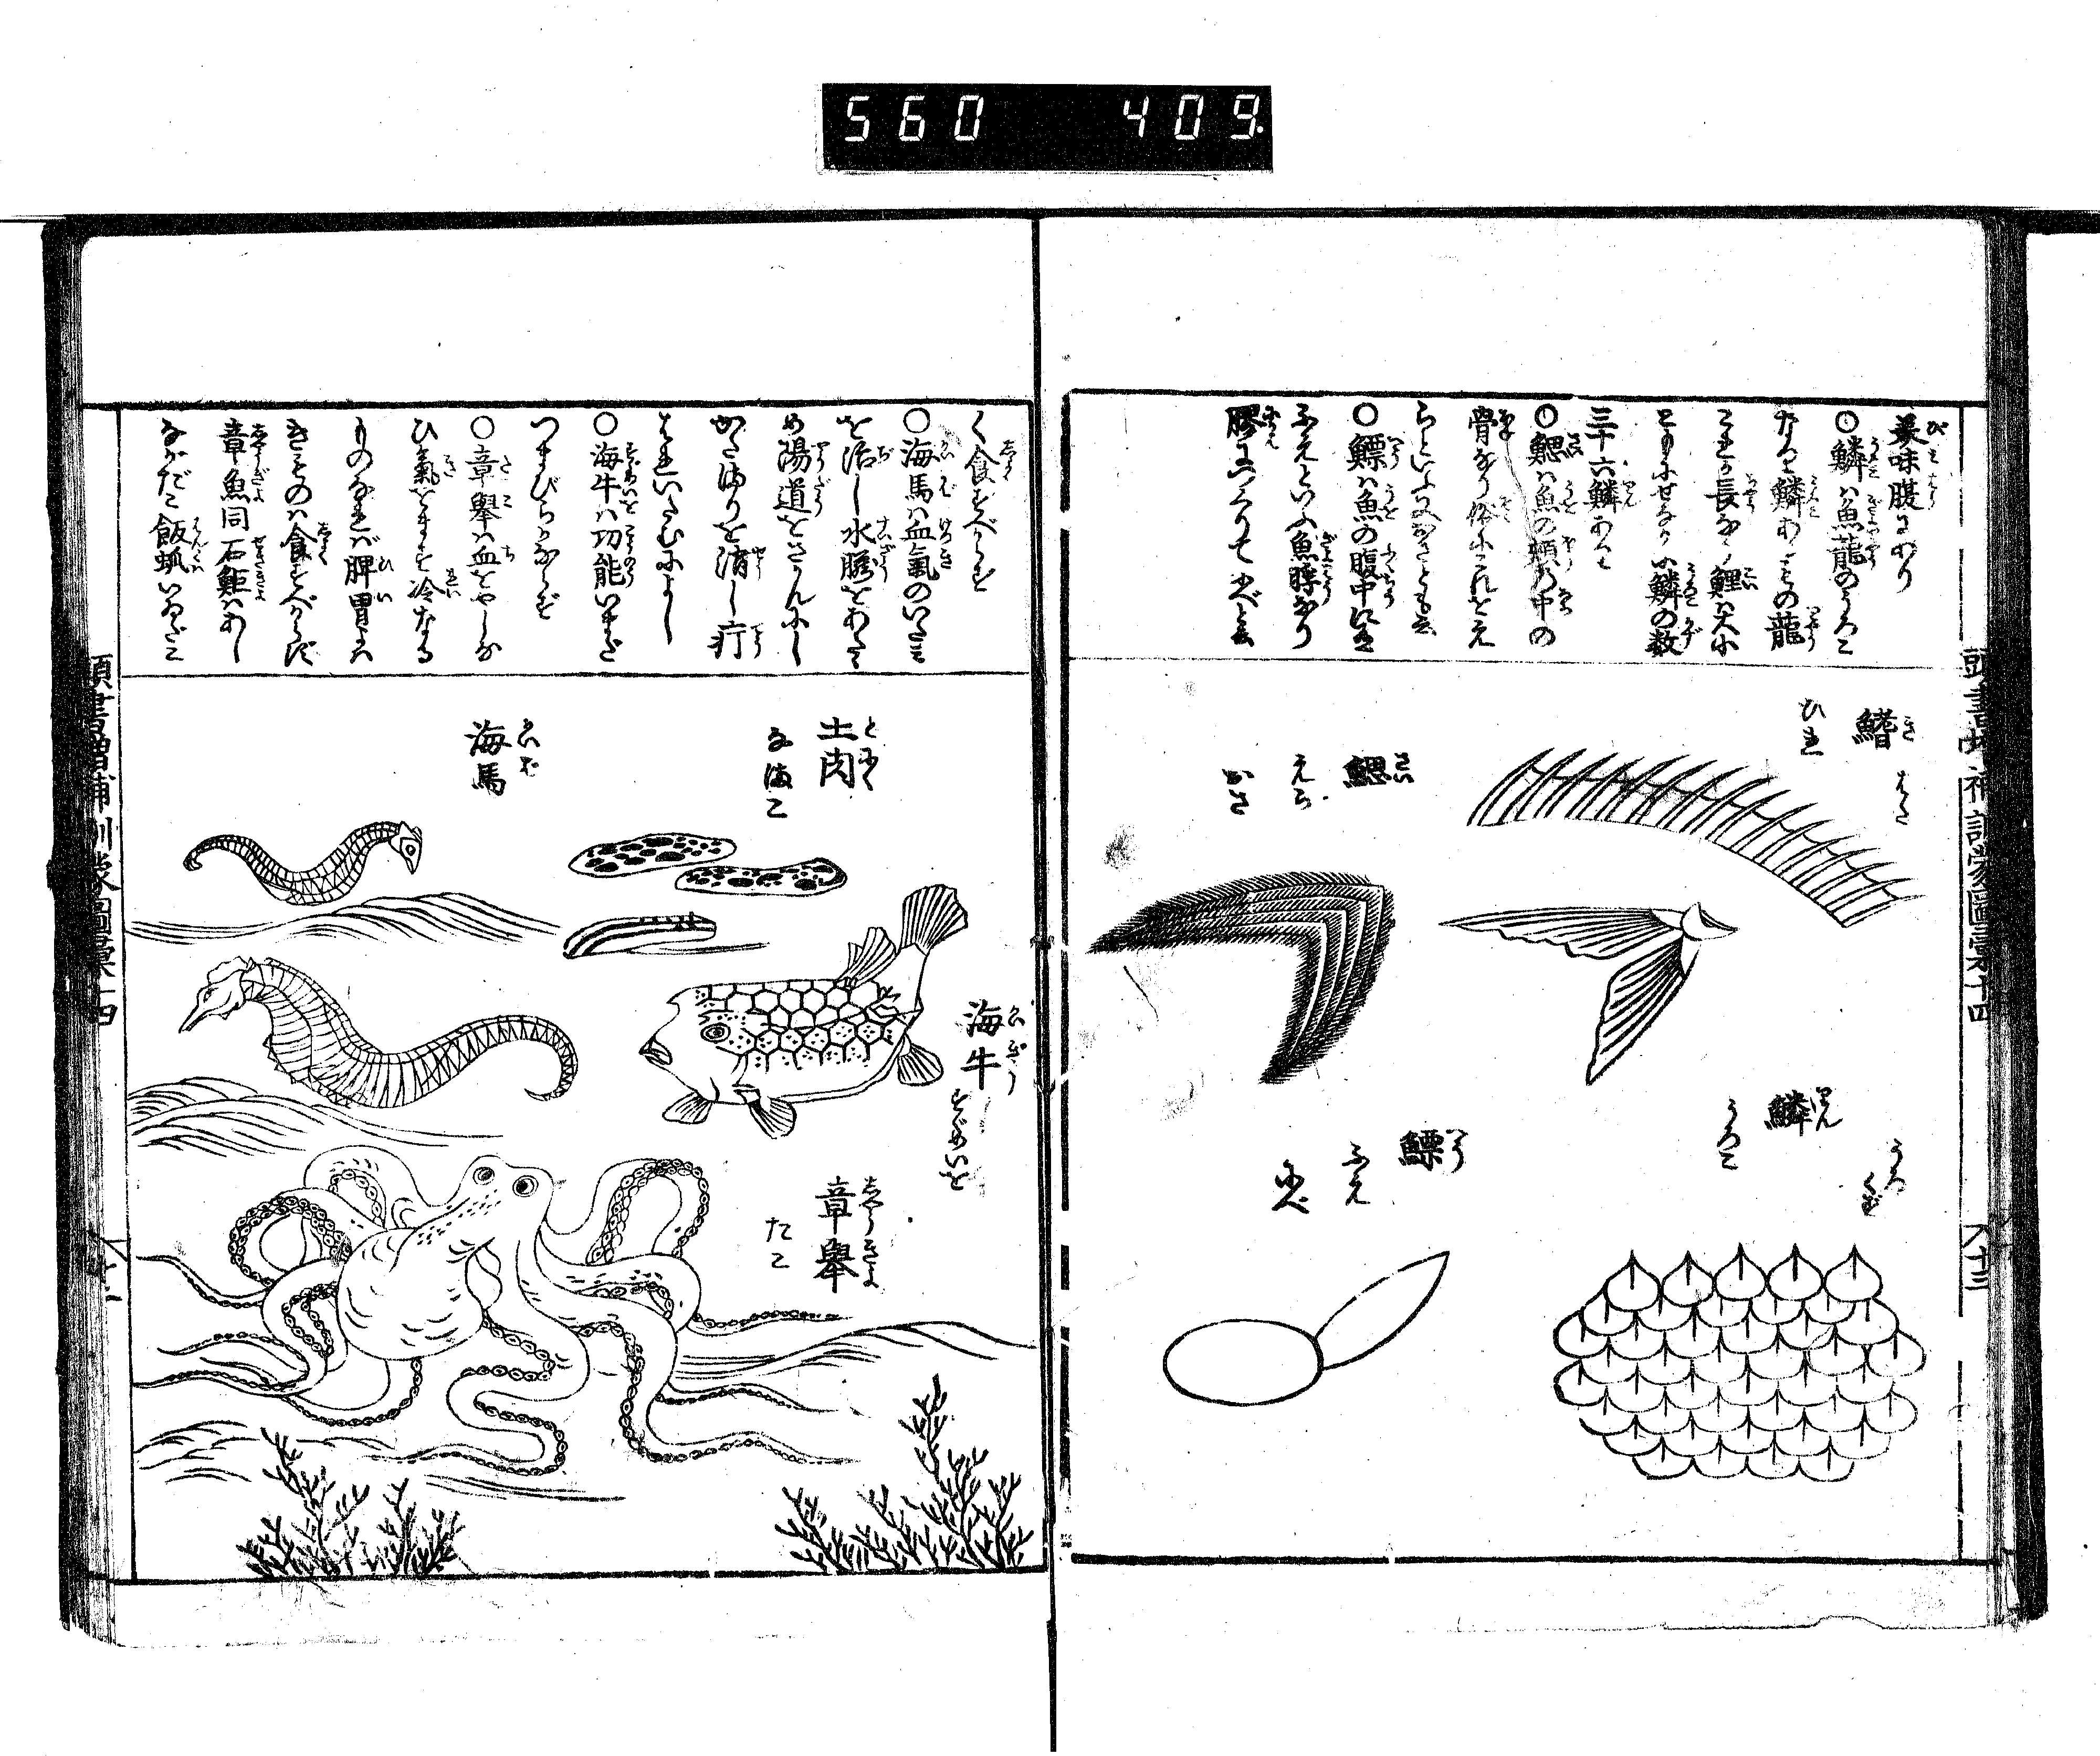 560 409.
美味腹にあり
○鱗ハ魚龍のうろこ
なり鱗あるものの龍
これが長なり鯉ハ大小
ともにせなかに鱗の数
三十六鱗あり
○鰓ハ魚の頬の中の
骨なり俗にこれをえ
らといふ又かさとも云
○鰾ハ魚の腹中にあ
ふえといふ魚脬なり
膠につくりて
鰭 き
はた
ひれ
鰓 さい
えら
かさ
鱗 りん
うろこ
うろくず
鰾 へう
ふえ
頭書増補訓蒙圖彙十四
十三
く食すべからず
○海馬ハ血氣のいたミ
を治し水臓をあたゝ
め陽道をさかんにし
かたまりを消し疔
はれいたむによし
○海牛ハ功能いまだ
つまびらかならず
○章擧ハ血をやしな
ひ氣をます冷なる
ものなれバ脾胃よハ
きものハ食すべからず
章魚同石鮔ハあし
ながだこ飯蛸いゐだこ
土肉 とにく
なまこ
海馬 かいば
海牛 かいぎう
すゞめいを
章擧 しやうきよ
たこ
頭書増補訓蒙圖彙十四